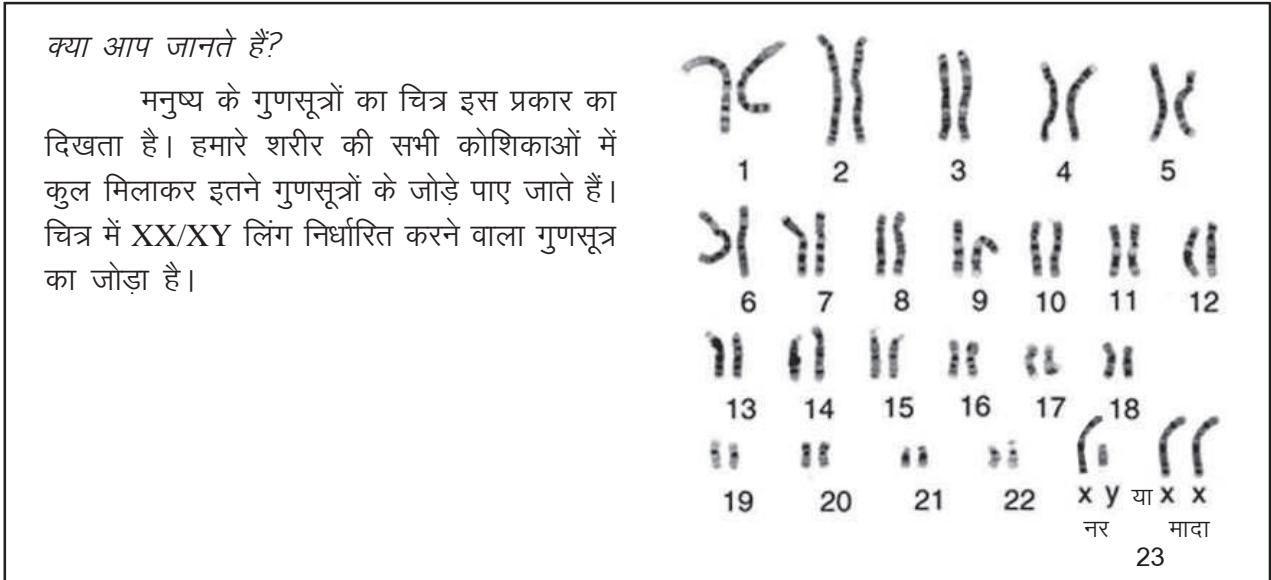 क्या आप जानते हैं?
मनुष्य के गुणसूत्रों का चित्र इस प्रकार का
दिखता है। हमारे शरीर की सभी कोशिकाओं में
कुल मिलाकर इतने गुणसूत्रों के जोड़े पाए जाते हैं।
चित्र में XX/XY लिंग निर्धारित करने वाला गुणसूत्र
का जोड़ा है।
1 2 3 4 5
6 7 8 9 10 11 12
13 14 15 16 17 18
19 20 21 22 x y या x x
नर मादा
23